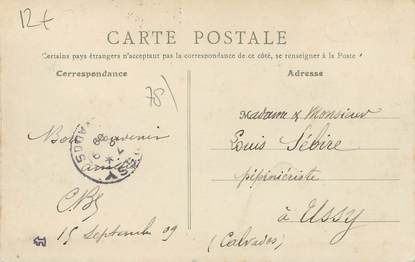 12+
CARTE POSTALE
Certains pays étrangers n'acceptant pas la correspondance de ce côté, se renseigner à la Poste
Correspondance
Adresse
78
Bon Souvenir
15 Septembre 09
Madame & Monsieur
Louis Sébire
pépiniériste
à Ussy
(Calvados)